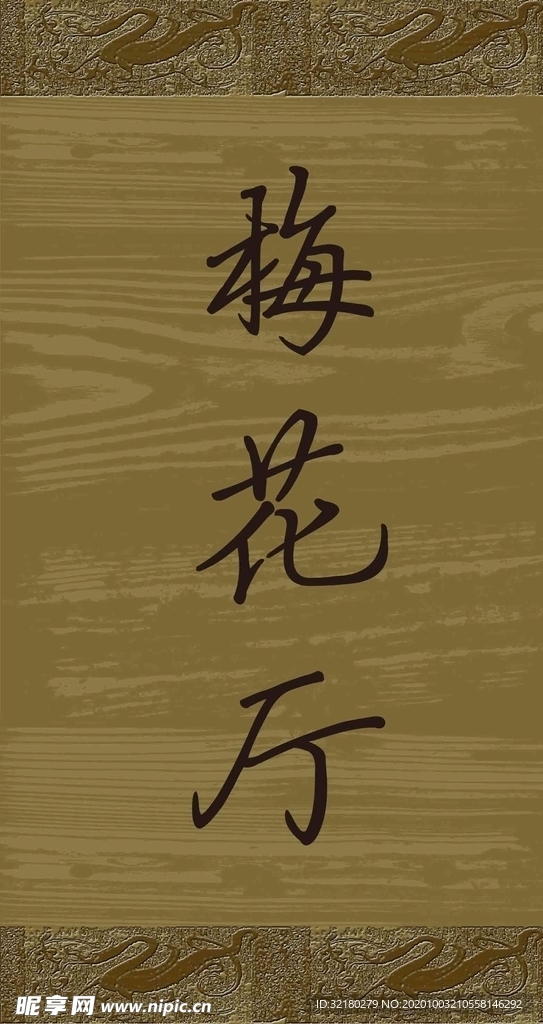 梅花厅
昵享网 www.nipic.cn
ID:32180279 NO:20201003210558146292